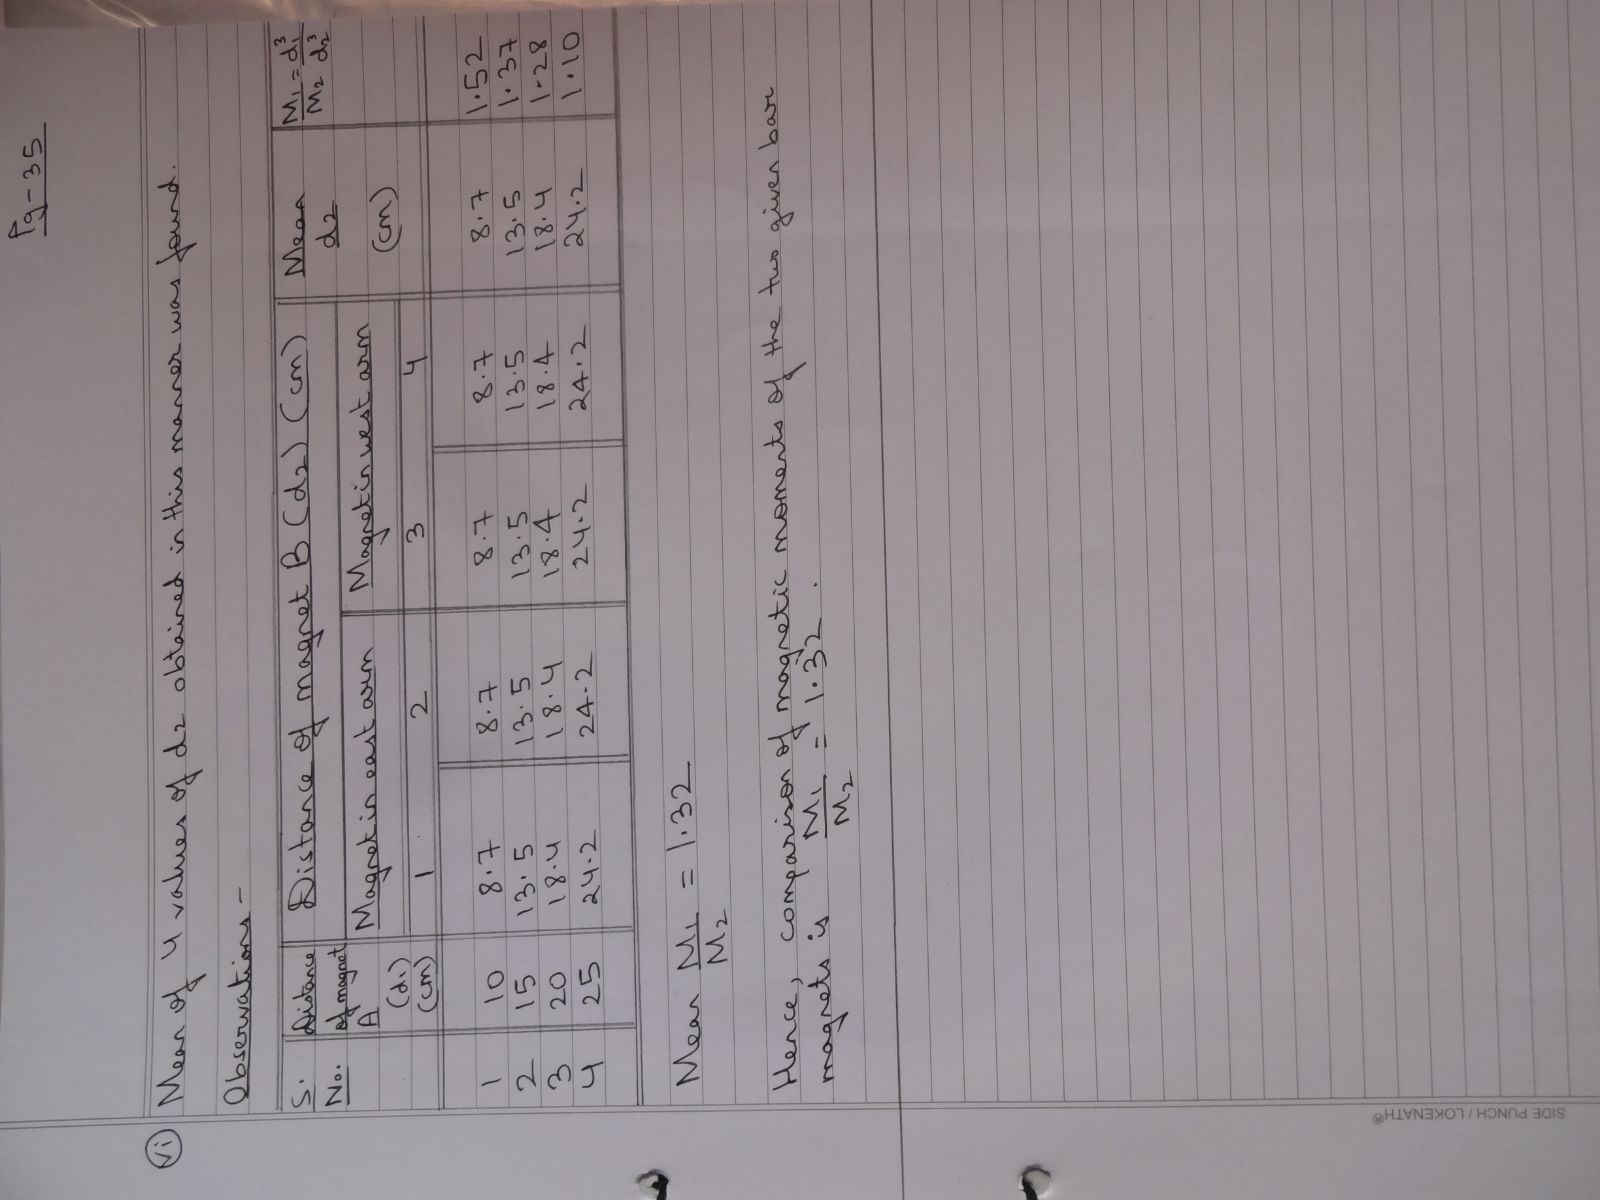 Pg-35
(vi) Mean of 4 values of d2 obtained in this manner was found.
Observations-
S. No. | Distance of magnet A (d1) (cm) | Distance of magnet B (d2) (cm) | Mean d2 (cm) | M1/M2 = d1³/d2³
Magnet in east arm | Magnet in west arm
1 | 2 | 3 | 4
1 | 10 | 8.7 | 8.7 | 8.7 | 8.7 | 8.7 | 1.52
2 | 15 | 13.5 | 13.5 | 13.5 | 13.5 | 13.5 | 1.37
3 | 20 | 18.4 | 18.4 | 18.4 | 18.4 | 18.4 | 1.28
4 | 25 | 24.2 | 24.2 | 24.2 | 24.2 | 24.2 | 1.10
Mean M1/M2 = 1.32
Hence, comparison of magnetic moments of the two given bar
magnets is M1/M2 = 1.32.
SIDE PUNCH / LOKENATH®